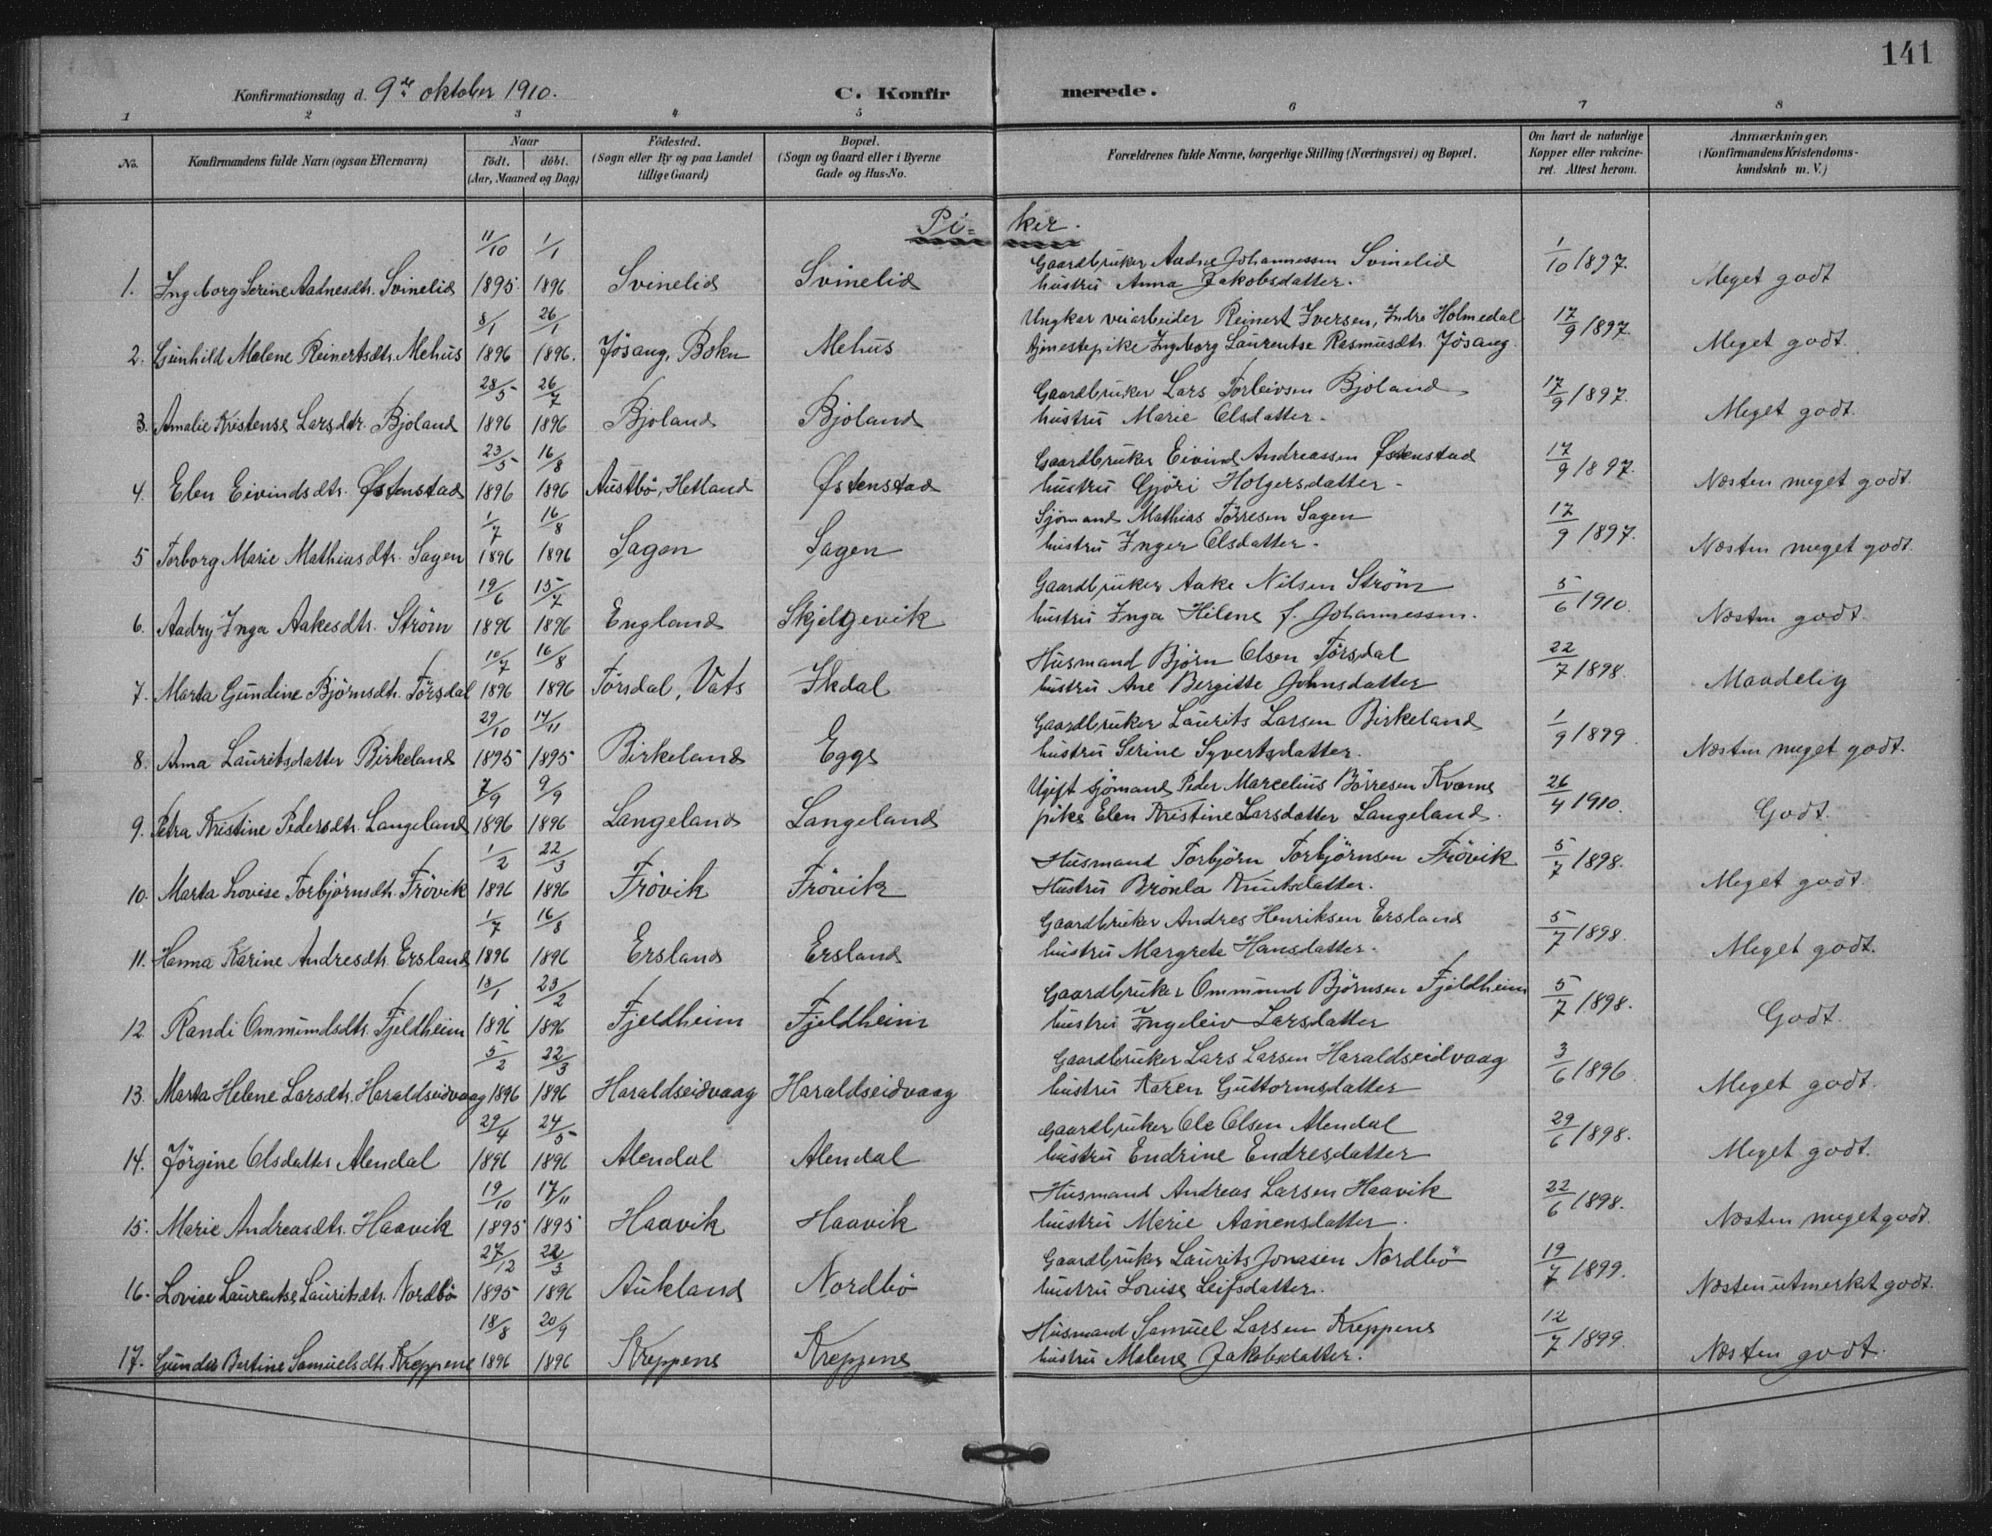 141
Konfirmationsdag d. 9de oktober 1910. C. Konfirmerede.
1 2 3 4 5 6 7 8
No. Konfirmandens fulde Navn (ogsaa Efternavn) Naar födt. döbt. (Aar, Maaned og Dag) Födested. (Sogn eller By og paa Landet tillige Gaard) Bopæl. (Sogn og Gaard eller i Byerne Gade og Hus-No. Forældrenes fulde Navne, borgerlige Stilling (Næringsvei) og Bopæl. Om havt de naturlige Kopper eller vakcineret. Attest herom. Anmærkninger. (Konfirmandens Kristendomskundskab m. V.)
Pi- ker.
11/10 1/1 Gaardbruker Aadne Johannessen Svinelid 1/10 1897.
1. Ingeborg Serine Aadnesdtr. Svinelid 1895 1896 Svinelid Svinelid hustru Anna Jakobsdatter. Meget godt
8/1 26/1 Ungkar veiarbeider Reinert Iversen, Indre Holmedal 17/9 1897.
2. Gunhild Malene Reinertsdtr. Mehus 1896 1896. Jösang, Bokn Mehus tjenestepike Ingeborg Laurentse Rasmusdtr. Jösang. Meget godt.
28/5 26/7 Gaardbruker Lars Torleivsen Bjoland 17/9 1897.
3. Amalie Kristense Larsdtr. Bjoland 1896 1896 Bjoland Bjoland hustru Marie Olsdatter. Meget godt.
23/5 16/8 Gaardbruker Eivind Andreassen Østenstad 17/9 1897.
4. Elen Eivindsdtr. Østenstad 1896 1896 Austbö, Hetland Østenstad hustru Gjöri Holgersdatter Næsten meget godt.
1/7 16/8 Sjömand Mathias Törresen Sagen 17/9 1897.
5 Torborg Marie Mathiasdtr. Sagen 1896 1896 Sagen Sagen hustru Inger Olsdatter. Næsten meget godt.
19/6 15/7 Gaardbruker Aake Nilsen Ström 5/6 1910.
6. Aadry Inga Aakesdtr. Ström 1896 1896 England Skjelgevik hustru Inga Helene f. Johannessen. Næsten godt.
10/7 16/8 Husmand Björn Olsen Törsdal 22/7 1898.
7. Marta Gundine Björnsdtr. Törsdal 1896 1896 Törsdal, Vats Ikdal hustru Ane Bergitte Johnsdatter Maadelig
29/10 14/11 Gaardbruker Laurits Larsen Birkeland 1/9 1899.
8. Anna Lauritsdatter Birkeland 1895 1895 Birkeland Egge hustru Serine Syvertsdatter. Næsten meget godt.
7/9 9/9 Ugift sjömand Peder Marcelius Börresen Kvame 26/4 1910.
9. Petra Kristine Pedersdtr. Langeland 1896 1896 Langeland Langeland pike Elen Kristine Larsdatter Langeland. Godt.
1/2 22/3 Husmand Torbjörn Torbjörnsen Frövik 5/7 1898.
10. Marta Lovise Torbjörnsdtr. Frövik 1896 1896 Frövik Frövik Hustru Brönla Knutsdatter. Meget godt.
1/7 16/8 Gaardbruker Andres Henriksen Ersland 5/7 1898.
11. Hanna Karine Andresdtr. Ersland 1896 1896 Ersland Ersland hustru Margrete Hansdatter. Meget godt.
13/1 23/2 Gaardbruker Ommund Björnsen Fjeldheim 5/7 1898.
12 Randi Ommundsdtr. Fjeldheim 1896 1896 Fjeldheim Fjeldheim hustru Ingeleiv Larsdatter Godt.
5/2 22/3 Gaardbruker Lars Larsen Haraldseidvaag 3/6 1896.
13. Marta Helene Larsdtr. Haraldseidvaag 1896 1896 Haraldseidvaag Haraldseidvaag hustru Karen Guttormsdatter Meget godt.
29/4 24/5 Gaardbruker Ole Olsen Alendal 29/6 1898.
14. Jörgine Olsdatter Alendal 1896 1896 Alendal Alendal hustru Endrine Endresdatter Meget godt.
19/10 17/11 Husmand Andreas Larsen Haavik 22/6 1898.
15. Marie Andreasdtr. Haavik 1895 1895 Haavik Haavik hustru Marie Aanensdatter. Næsten meget godt.
27/12 22/3 Gaardbruker Laurits Jonasen Nordbö 19/7 1899.
16. Lovise Laurentse Lauritsdtr. Nordbö 1895 1896 Aukland Nordbö hustru Lovise Leifsdatter. Næsten utmerket godt.
18/8 20/9 Husmand Samuel Larsen Kreppene 12/7 1899.
17. Gunda Bertine Samuelsdtr. Kreppene 1896 1896 Kreppene Kreppene hustru Malene Jakobsdatter. Næsten godt.